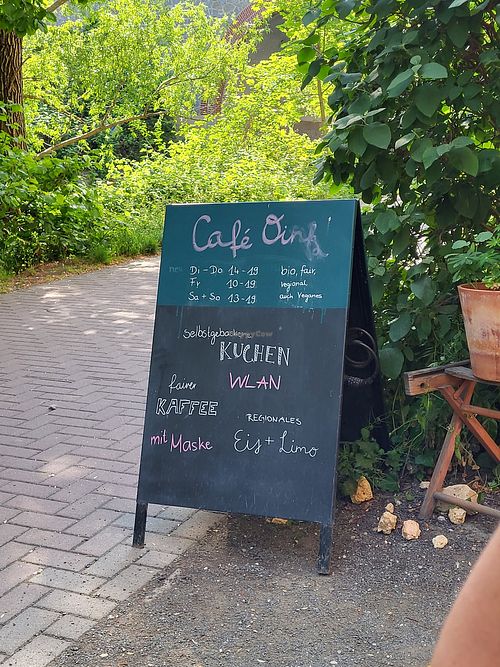 Café Oink
neu Di - Do 14-19 bio, fair,
Fr 10-19 regional,
Sa + So 13-19 auch Veganes
selbstgebackener
KUCHEN
WLAN
fairer
KAFFEE
REGIONALES
mit Maske
Eis + Limo